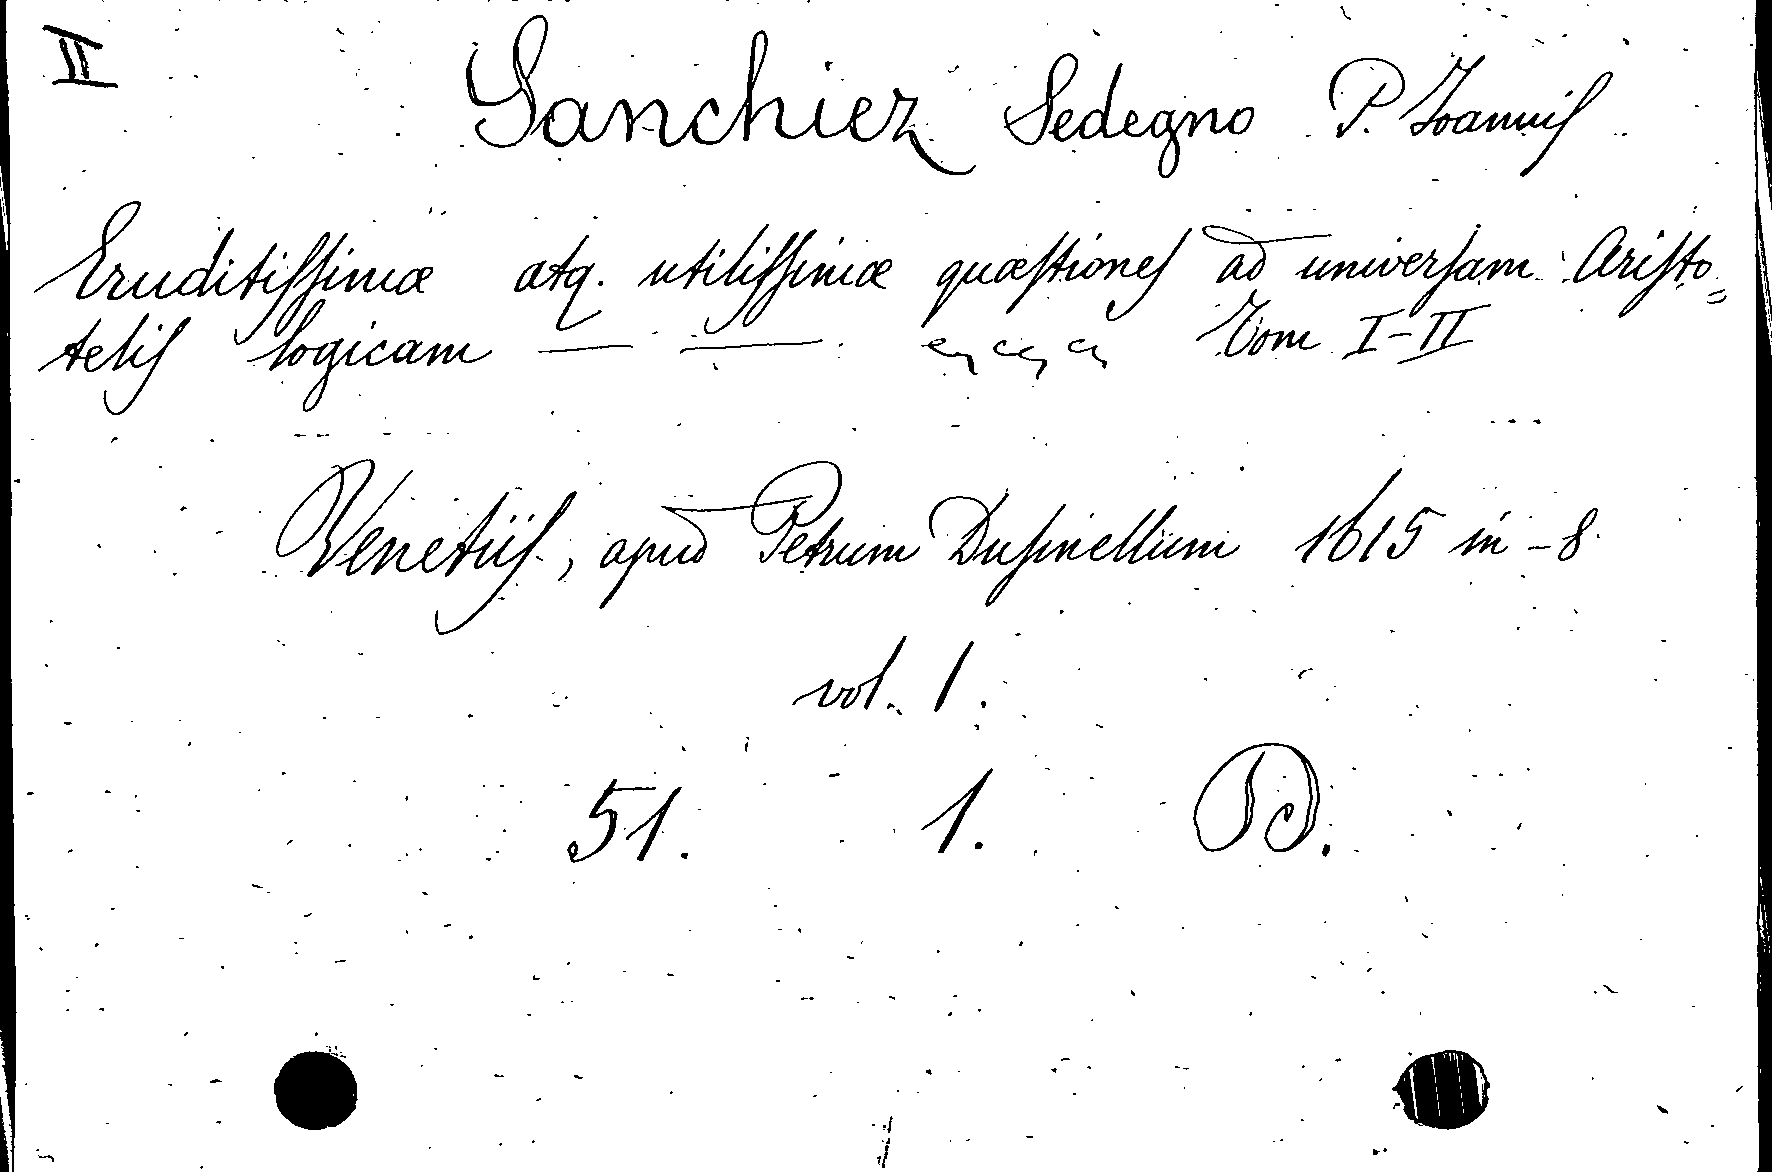 II
Sanchiez Sedegno P. Joannis
Eruditissimæ atq. utilissimæ quæstiones ad universam Aristo=
telis logicam — — Tom I-II
Venetiis, apud Petrum Dusinellum 1615 in-8
vol. 1.
51. 1. D.